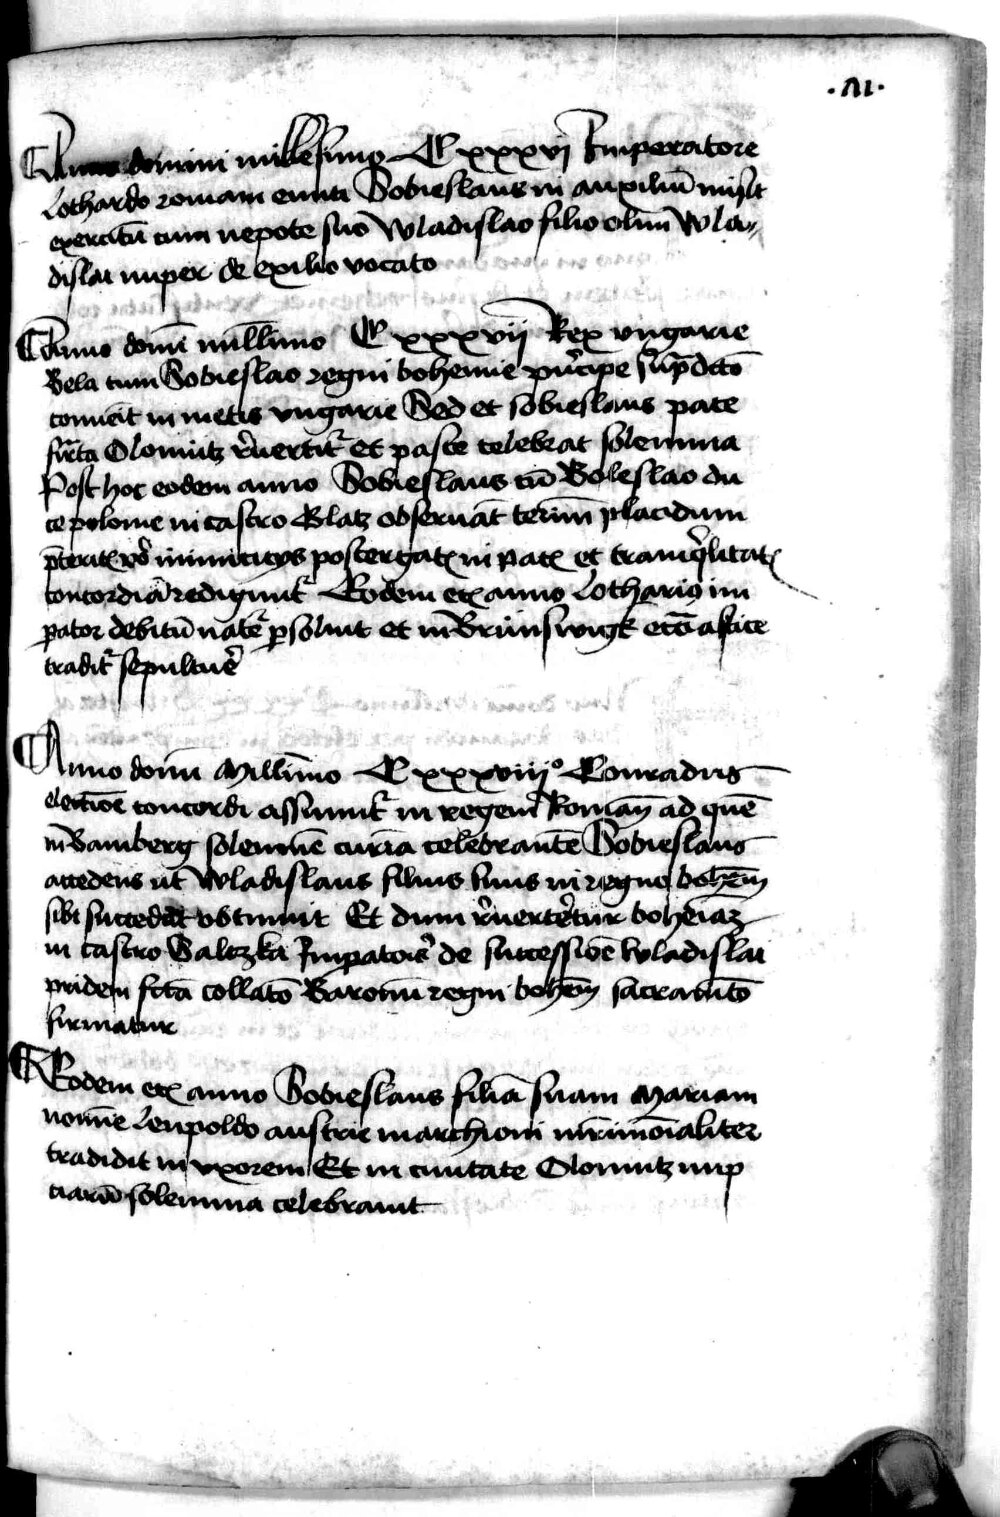 Anno domini millesimo C xxxvj Imperatore
Lothardo romam eunti Sobieslaus in auxiliū misit
exercitū cum nepote suo Wladislao filio olim Wla-
dislai nuper de exilio vocato
Anno domī millīmo C xxxvij Rex vngarie
Bela cum Sobieslao regni bohemie pncipe supdcto
conueīt in metis vngarie Sed et sobieslaus pace
fcta Olomutz reuertit et pasce celebrat solemnia
Post hoc eodem anno Sobieslaus cū Boleslao du
ce polonie in castro Glatz obseruāt terminū placidum
pterit vo inimicicijs postergat in pace et tranqlitat
concordiā redigunt Eodem et anno Lotharius im
pator debitū nate psoluit et in Brunswigk
tradit sepulture
Anno domī Millīmo C xxxviij° Conradus
electiōe concordi assumit in regem Romanū ad quē
in Bamberg solemnē curiā celebrantē Sobieslaus
accedens ut Wladislaus filius suus in regno bohem
sibi succedat obtinuit Et dum reuerteretur bohemiā
in castro Saltzka Impatoris de successiōe Wladislai
pridem fctā collatō Baronū regni bohem sacramto
firmatur
Eodem et anno Sobieslaus filiā suam Mariam
nomīe Leupoldo austrie marchioni mrimoīaliter
tradidit in vxorem Et in ciuitate Olomutz nup
ciarū solemnia celebrauit